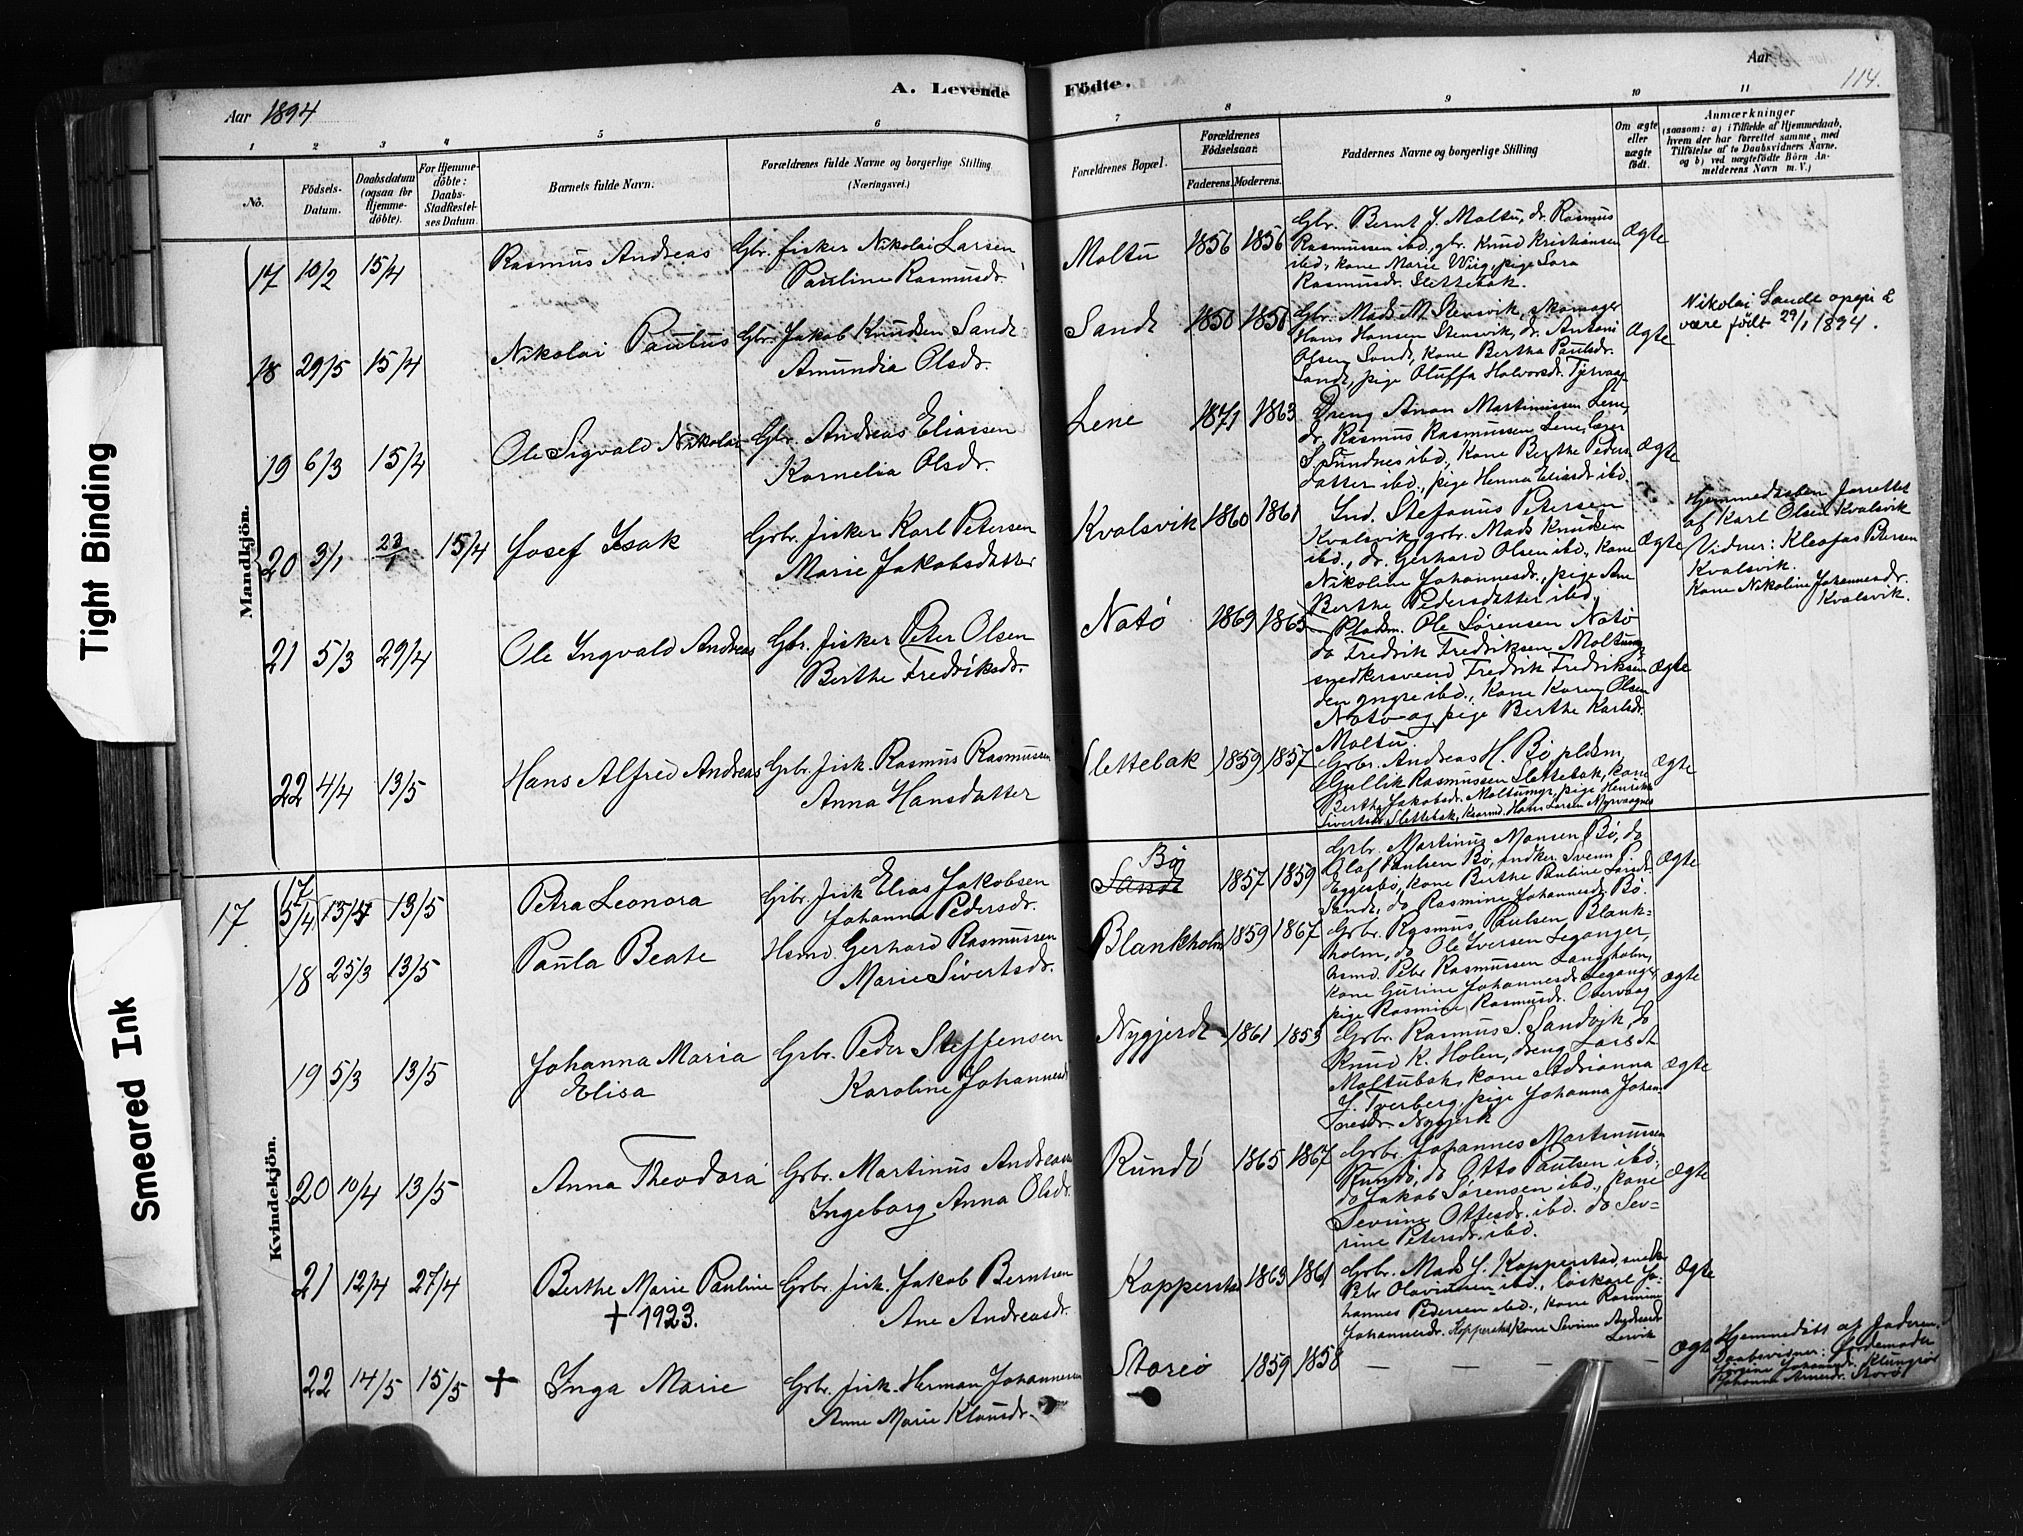 Aar 1894
A. Levende
Födte.
Aar
114.
1 2 3 4 5 6 7 8 9 10 11
No.
Födsels-
Datum.
Daabsdatum
(ogsaa for
Hjemme-
döbte).
For Hjemme-
döbte:
Daabs-
Stadfæstel-
ses Datum.
Barnets fulde Navn.
Forældrenes fulde Navne og borgerlige Stilling
(Næringsvei.)
Forældrenes Bopæl.
Forældrenes
Födselsaar.
Faderens. Moderens.
Faddernes Navne og borgerlige Stilling
Om ægte
eller
uægte
födt.
Anmærkninger
(saasom: a) i Tilfælde af Hjemmedaab,
hvem der har forrettet samme, med
Tilföielse af to Daabsvidners Navne,
og b) ved uægtefödte Börn An-
melderens Navn m. V.)
Mandkjön.
17 10/2 15/4 Rasmus Andreas
Gbr. fisker Nikolai Larsen
Pauline Rasmusdr.
Moltu 1856 1856
Gbr. Bernt J. Moltu, do. Rasmus
Rasmussen ibd., gbr. Knud Kristiansen
ibd., kone Marie Wiig, pige Lara
Rasmusdr. Slettebak.
Ægte
18 29/5 15/4 Nikolai Paulus
Gbr. Jakob Knudsen Sande
Amundia Olsdr.
Sande 1850 1850
Gbr. Mads M. Stensvik, skomager
Hans Hansen Stensvik, dr. Antoni
Olsen Sande, kone Bertha Paulsdr.
Sande, pige Oluffa Halvorsdr. Tjervaag
Ægte
Nikolai Sande opgir å
være født 29/1 1894.
19 6/3 15/4 Ole Sigvald Nikolai
Gbr. Andreas Eliassen
Kornelia Olsdr.
Lene 1871 1863
Dreng Anon Martinussen Lene,
dr. Rasmus Rasmussen Lene, lærer
S. Sundnes ibd., kone Berthe Peders
datter ibd., pige Henna Eliasdr. ibd.
Ægte
20 3/1 23/1 15/4 Josef Isak
Grbr. fisker Karl Petersen
Marie Jakobsdatter
Kvalsvik 1860 1861
Ind. Stefanus Petersen
Kvalsvik, grbr. Mads Knudsen
ibd., dr. Gerhard Olsen ibd., kone
Nikoline Johannesdr., pige Ane
Berthe Pedersdatter ibd.
Ægte
Hjemmedaaben forrettet
af Karl Olsen Kvalsvik
Vidner: Kleofas Petersen
Kvalsvik.
Kone Nikoline Johannesdr.
Kvalsvik.
21 5/3 29/4 Ole Ingvald Andreas
Gbr. fisker Peter Olsen
Berthe Fredriksdr.
Natø 1869 1865
Pladsm. Ole Sørensen Natø
do Fredrik Fredriksen Moltumyr
snedkersvend Fredrik Fredriksen
den yngre ibd., kone Karen Olsen
Natø og pige Berthe Karlsdr.
Moltu.
Ægte
22 4/4 13/5 Hans Alfred Andreas
Grbr. fisk. Rasmus Rasmussen
Anna Hansdatter
Slettebak 1859 1857
Grbr. Andreas H. Bø pldsm.
Gullik Rasmussen Slettebak, kone
Berthe Jakobsdr. Moltumyr, pige Henrikke
Sivertsdr. Slettebak, kaarmd. Hans Larsen Myrvaagnes
Ægte
Kvindekjön.
17 17 5/4 13/5 13/5 Petra Leonora
Grbr. fisk Elias Jakobsen
Johanna Pedersdr.
Bø
Sande 1857 1859
Grbr. Martinus Monsen Bø, do
Olaf Paulsen Bø, Svenn P.
Eggesbø, kone Berthe Pauline
Sande, do Rasmine Johannesdr. Bø
Ægte
18 25/3 13/5 Paula Beate
Hsmd. Gerhard Rasmussen
Marie Sivertsdr.
Blankholm 1859 1867
Grbr. Rasmus Paulsen Blank-
holm, do Ole Iversen Leganger,
hsmd. Peter Rasmussen Langholm,
kone Gurine Johannesdr. Leganger
pige Rasmine Rasmusdr. Obervaag
Ægte
19 5/3 13/5 Johanna Maria
Elisa
Grbr. Peder Steffensen
Karoline Johannesdr.
Nygjerde 1861 1853
Grbr. Rasmus S. Sandvik, do
Knud K. Holen, dreng Lars
Moltubak, kone Adrianna
J. Tverberg, pige Johanna Johan-
nesdr. Nygjerde
Ægte
20 10/4 13/5 Anna Theodora
Grbr. Martinus Andreassen
Ingeborg Anna Olsdr.
Rundø 1865 1867
Grbr. Johannes Martinussen
Rundø, do Otto Paulsen ibd.,
do Jakob Sørensen ibd., kone
Sevrine Ottesdr. ibd. do Sev-
rine Petersdr. ibd.
Ægte
21 12/4 27/4 Berthe Marie Pauline
+ 1923.
Grbr. fisk. Jakob Berntsen
Ane Andreasdr.
Kopperstad 1863 1861
Grbr. Mads J. Kopperstad, snedk.
ibd., løskarl Jo-
hannes Pedersen ibd., kone Rasmine
Johannesdr. Kopperstad kone Sevrine
Leivik
Ægte
22 14/5 15/5 + Inga Marie
Grbr. fisk. Herman Johannessen
Anne Marie Klausdr.
Storeø 1859 1858 — — — — —
Ægte
Hjemmedøbt af Faderen.
Daabsvidner: Jordemoder
Johannesdr. Klungsør
Johanna Storø
Tight Binding
Smeared Ink